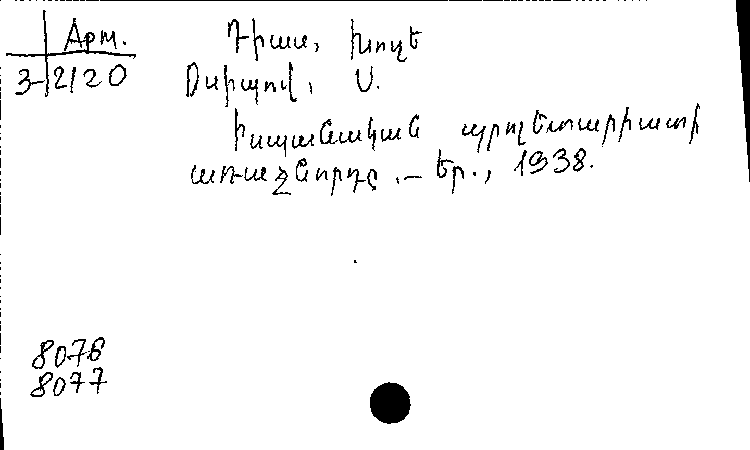 Арм.
3-2120
Դիաս, Խոզե
Օսիպով, Ս.
Իսպանական պրոլետարիատի
առաջնորդը .— Եր., 1938.
8076
8077